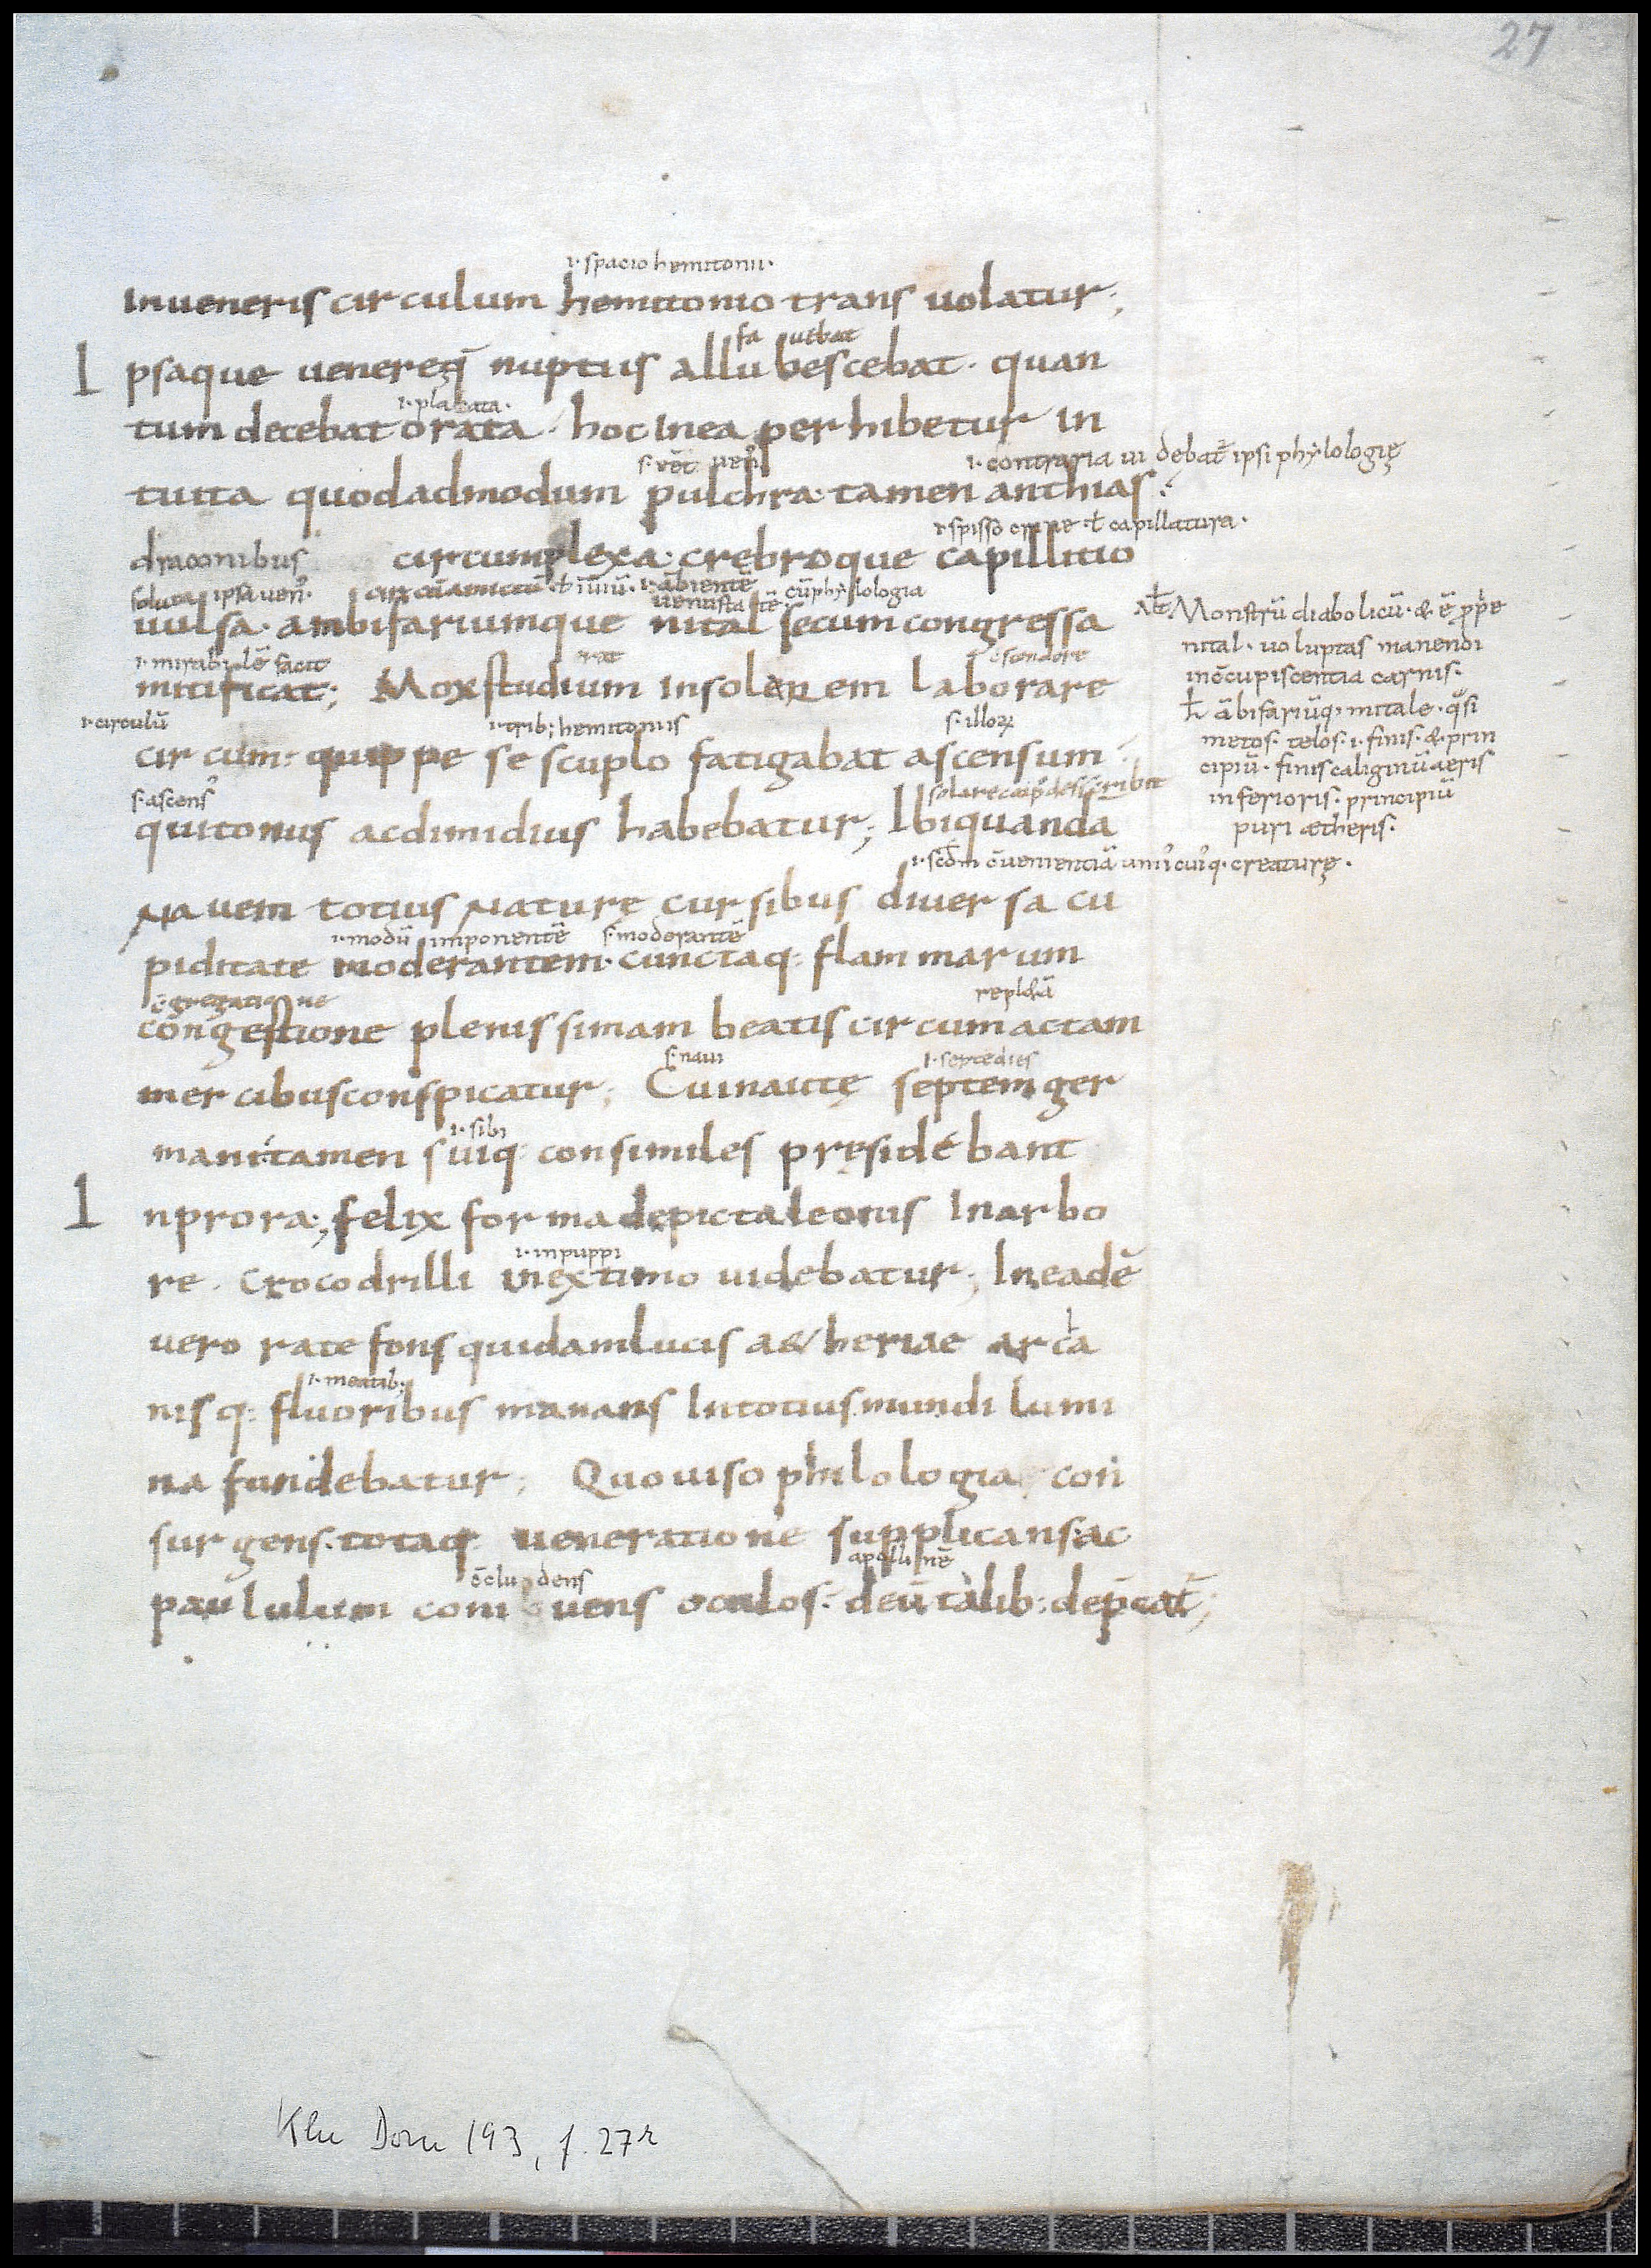 27
.i. spacio hemitonii.
in ueneris circulum hemitonio trans uolatur;
fa uebat
Ipsaque uenereq nuptiis allubescebat. quan
.i. placata.
tum decebat orata. hoc in ea perhibetur in
.i. contraria ui debat̄ ipsi phylologię
tuita quodadmodum pulchra. tamen anthias.
.i. spisso crine ł capillatura.
draconibus circumplexa. crebroque capillitio
soluta ipsa uen
.i. ābientē
uenusta cū phylologia
uulsa. ambifariumque nital secum congressa
.i. mirabilē facit
ostendere
mirificat; Mox studium in solarem laborare
.i. circulū
.i. trib; hemitoniis
s. illoꝝ
circum: quippe sescuplo fatigabat ascensum.
s. ascens
qui tonus ac dimidius habebatur; Ibi quanda
.i. scdm̄ ɔuenientiā uni cuiq. creaturę.
nauem totius naturę cursibus diuersa cu
.i. modū imponentē s. moderantē
piditate moderantem. cunctaq: flammarum
ɔgregatione
repletā
congestione plenissimam beatis circumactam
s. naui
.i. septedies
mercibus conspicatur; Cui nautę septem ger
.i. sibi
mani. tamen suiq: consimiles pręsidebant
In prora; felix forma depicta leonis In arbo
.i. in puppi
re. crocodrilli in extimo uidebatur; In eadē
uero rate fons quidam lucis a&heriae arca
.i. meatib;
nisq: fluoribus manans In totius mundi lumi
na fundebatur; Quo uiso philologia con
surgens. totaq: ueneratione supplicans. ac
ɔcludens
apollinē
paululum coniuens oculos. deū talib: dep̄cat̄;
Monstrū diabolicū. & ē pp̄e
nital. uoluptas manendi
in ɔcupiscentia carnis.
ł ābifariūq. nitale. qsi
metos. telos. i. finis. & prin
cipiū. finis caliginū aeris
inferioris. principiū
puri ætheris.
Kln Dom 193, f. 27r